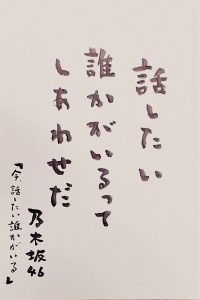 話したい
誰かがいるって
しあわせだ
乃木坂46
「今、話したい誰かがいる」